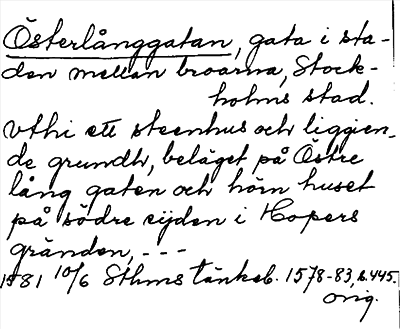 Österlånggatan, gata i sta-
den mellan broarna, Stock-
holms stad.
vthi ett steenhus och liggien-
de grundh, beläget på Östre
lång gaten och hörn huset
på södre sijden i Hopers
gränden, ---
1581 10/6 Sthms tänkeb. 1578-83, s. 445.
orig.